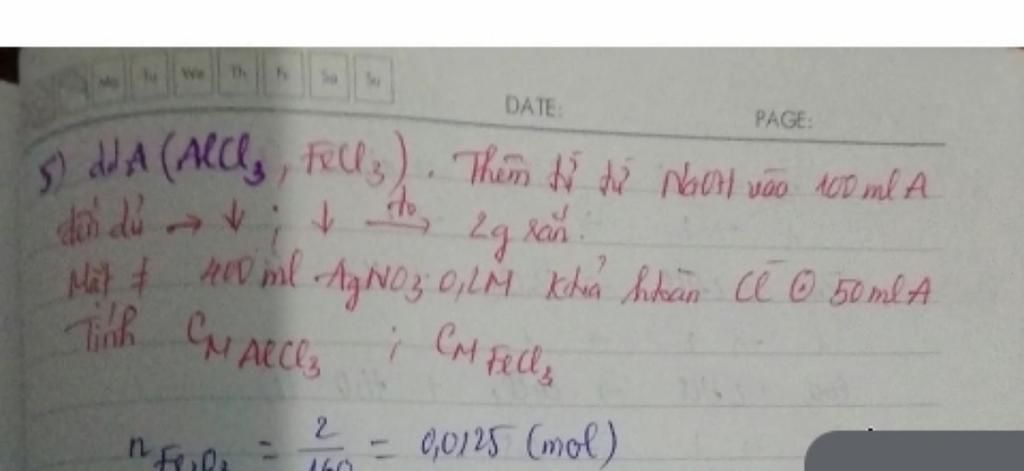 Mo Tu We Th Fr Sa Su
DATE: PAGE:
5) ddA (AlCl3, FeCl3). Thêm từ từ NaOH vào 100ml A
đến dư → ↓ ; ↓ t° → 2g rắn.
Mặt ≠ 400ml AgNO3 0,2M khử htoàn Cl⁻ ⊙ 50mlA
Tính CM AlCl3 ; CM FeCl3
n Fe2O3 = 2/160 = 0,0125 (mol)